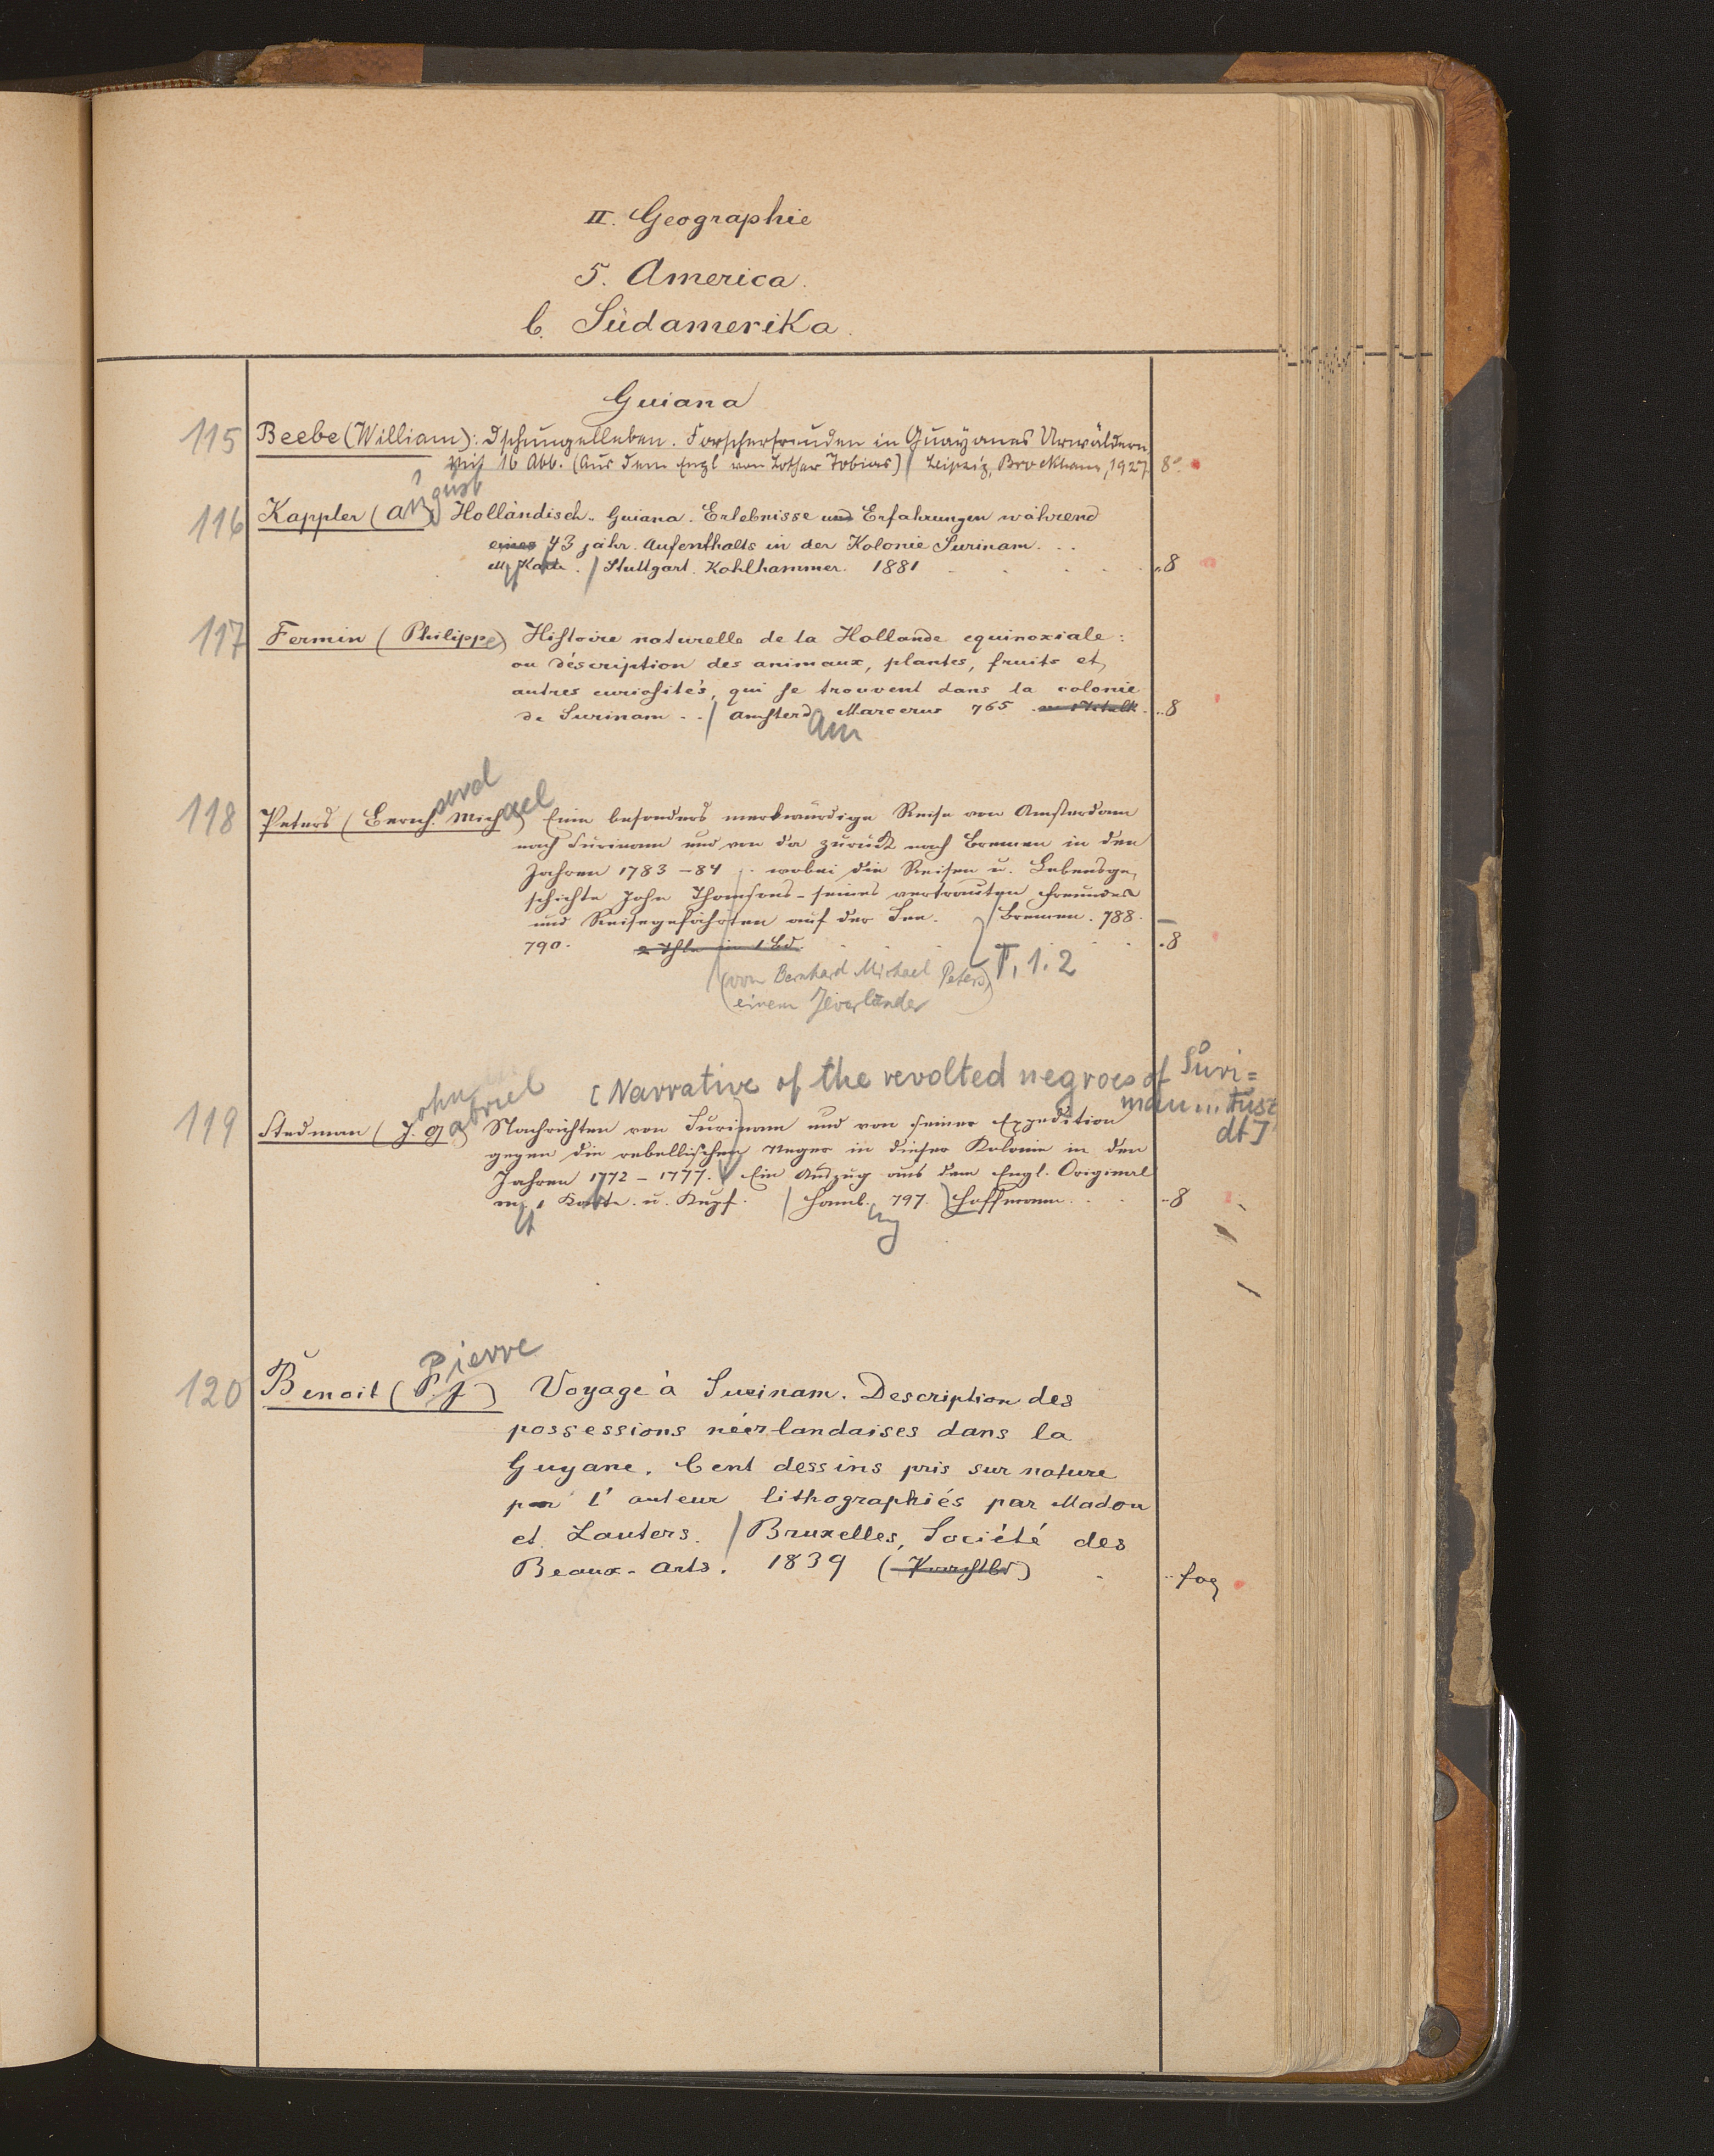 II. Geographie
5. America.
b. Südamerika.
Guiana
115 Beebe (William): Dschungelleben. Forscherfreuden in Guayanas Urwäldern,
Mit 16 Abb. (Aus dem Engl von Lothar Tobias) / Leipzig, Brockhaus, 1927. 8°.
116 Kappler (August) Holländisch-Guiana. Erlebnisse und Erfahrungen während
eines 43 jähr. Aufenthalts in der Kolonie Surinam. . .
M. Karte. / Stuttgart. Kohlhammer. 1881 8
117 Fermin (Philippe) Histoire naturelle de la Hollande equinoxiale:
ou déscription des animaux, plantes, fruits et,
autres curiosités, qui se trouvent dans la colonie
de Surinam . . / Amsterdam Marcerus 765 8
118 Peters (Bernh. Michael) Eine besonders merkwürdige Reise von Amsterdam
nach Surinam und von da zurück nach Bremen in den
Jahren 1783-84 . wobei die Reisen u. Lebensge-
schichte John Thomsons - seines vertrauten Freundes
und Reisegefährten auf der See. / Bremen. 788.
790. 2 Thle in 1 Bd. T. 1. 2 8
(von Bernhard Michael Peters,
einem Jeverländer)
[Narrative of the revolted negroes of Suri=
nam ...
dt]
119 Stedman (John Gabriel) Nachrichten von Surinam und von seiner Expedition
gegen die rebellischen Neger in dieser Kolonie in den
Jahren 1772-1777. Ein Auszug aus dem Engl. Original
mit 1 Karte. u. Kupf. / Hamb. 797. Hoffmann. 8
120 Benoit (Pierre J) Voyage à Surinam. Description des
possessions néerlandaises dans la
Guyane. Cent dessins pris sur nature
par l'auteur lithographiés par Madou
et Lauters. / Bruxelles, Société des
Beaux-Arts. 1839 fog